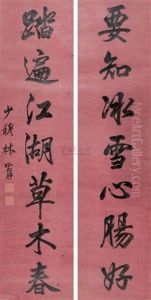 要知冰雪心腸好
踏遍江湖草木春
少穆林